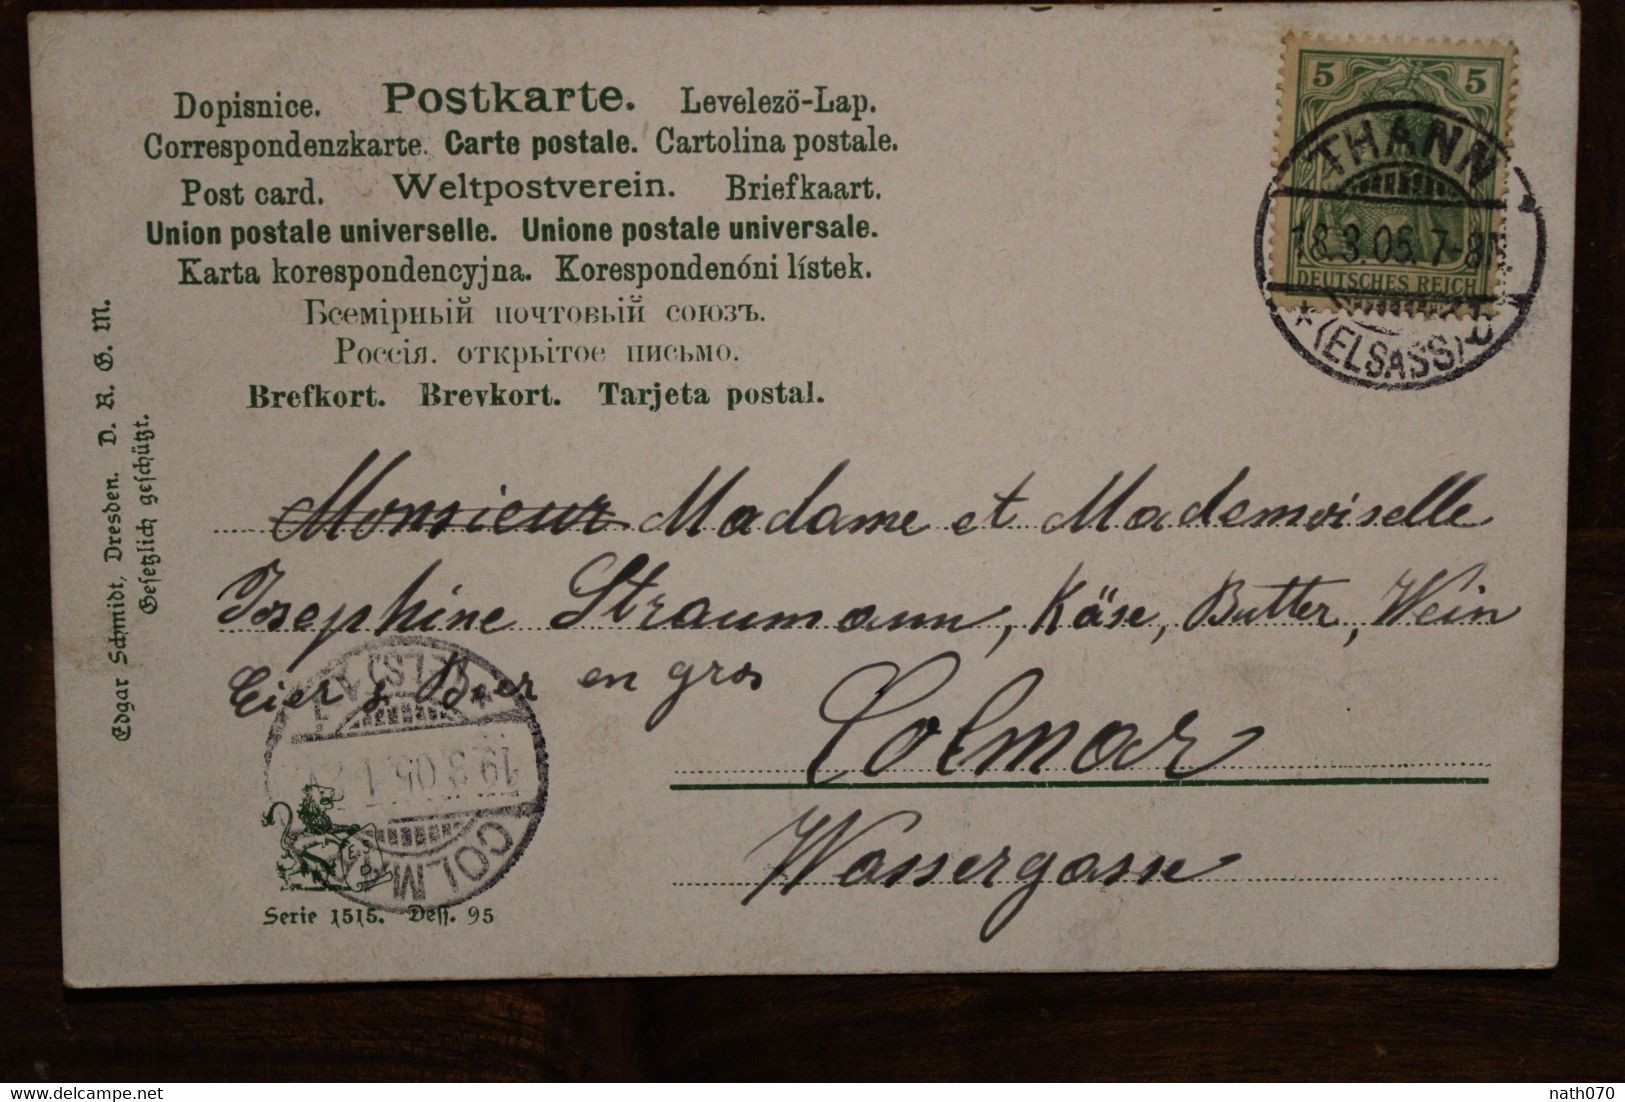 Dopisnice. Postkarte. Levelezö-Lap.
Correspondenzkarte. Carte postale. Cartolina postale.
Post card. Weltpostverein. Briefkaart.
Union postale universelle. Unione postale universale.
Karta korespondencyjna. Korespondenóni lístek.
Всемірный почтовый союзъ.
Россія. открытое письмо.
Brefkort. Brevkort. Tarjeta postal.
5 5
DEUTSCHES REICH
THANN
18.3.05.7-8N.
* (ELSASS) b
Edgar Schmidt, Dresden. D. R. G. M.
Gesetzlich geschützt.
Monsieur Madame et Mademoiselle
Josephine Straumann, Käse, Butter, Wein
Eier & Beer en gros
Colmar
Wassergasse
COLMAR
19.3.05.1
(ELS)
E. S. D.
Serie 1515. Dess. 95
nath070